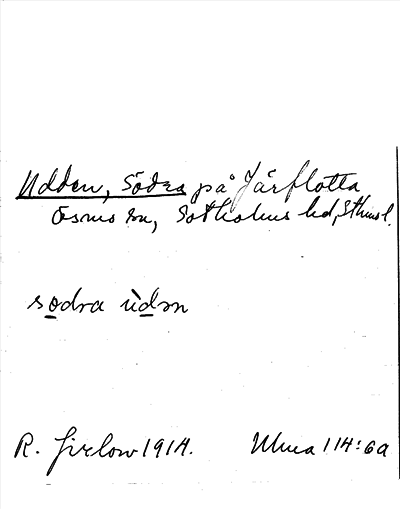 Udden, Södra på Järflotta
Ösmo sn, Sotholms hd, Sthms l.
sodra ùdm
R. Jirlow 1914. Ulma 114:6a